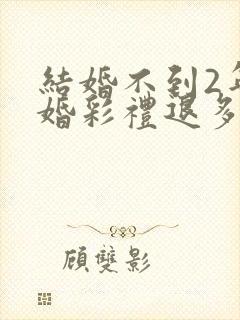 結婚不到2年
婚彩禮退多
顧雙影